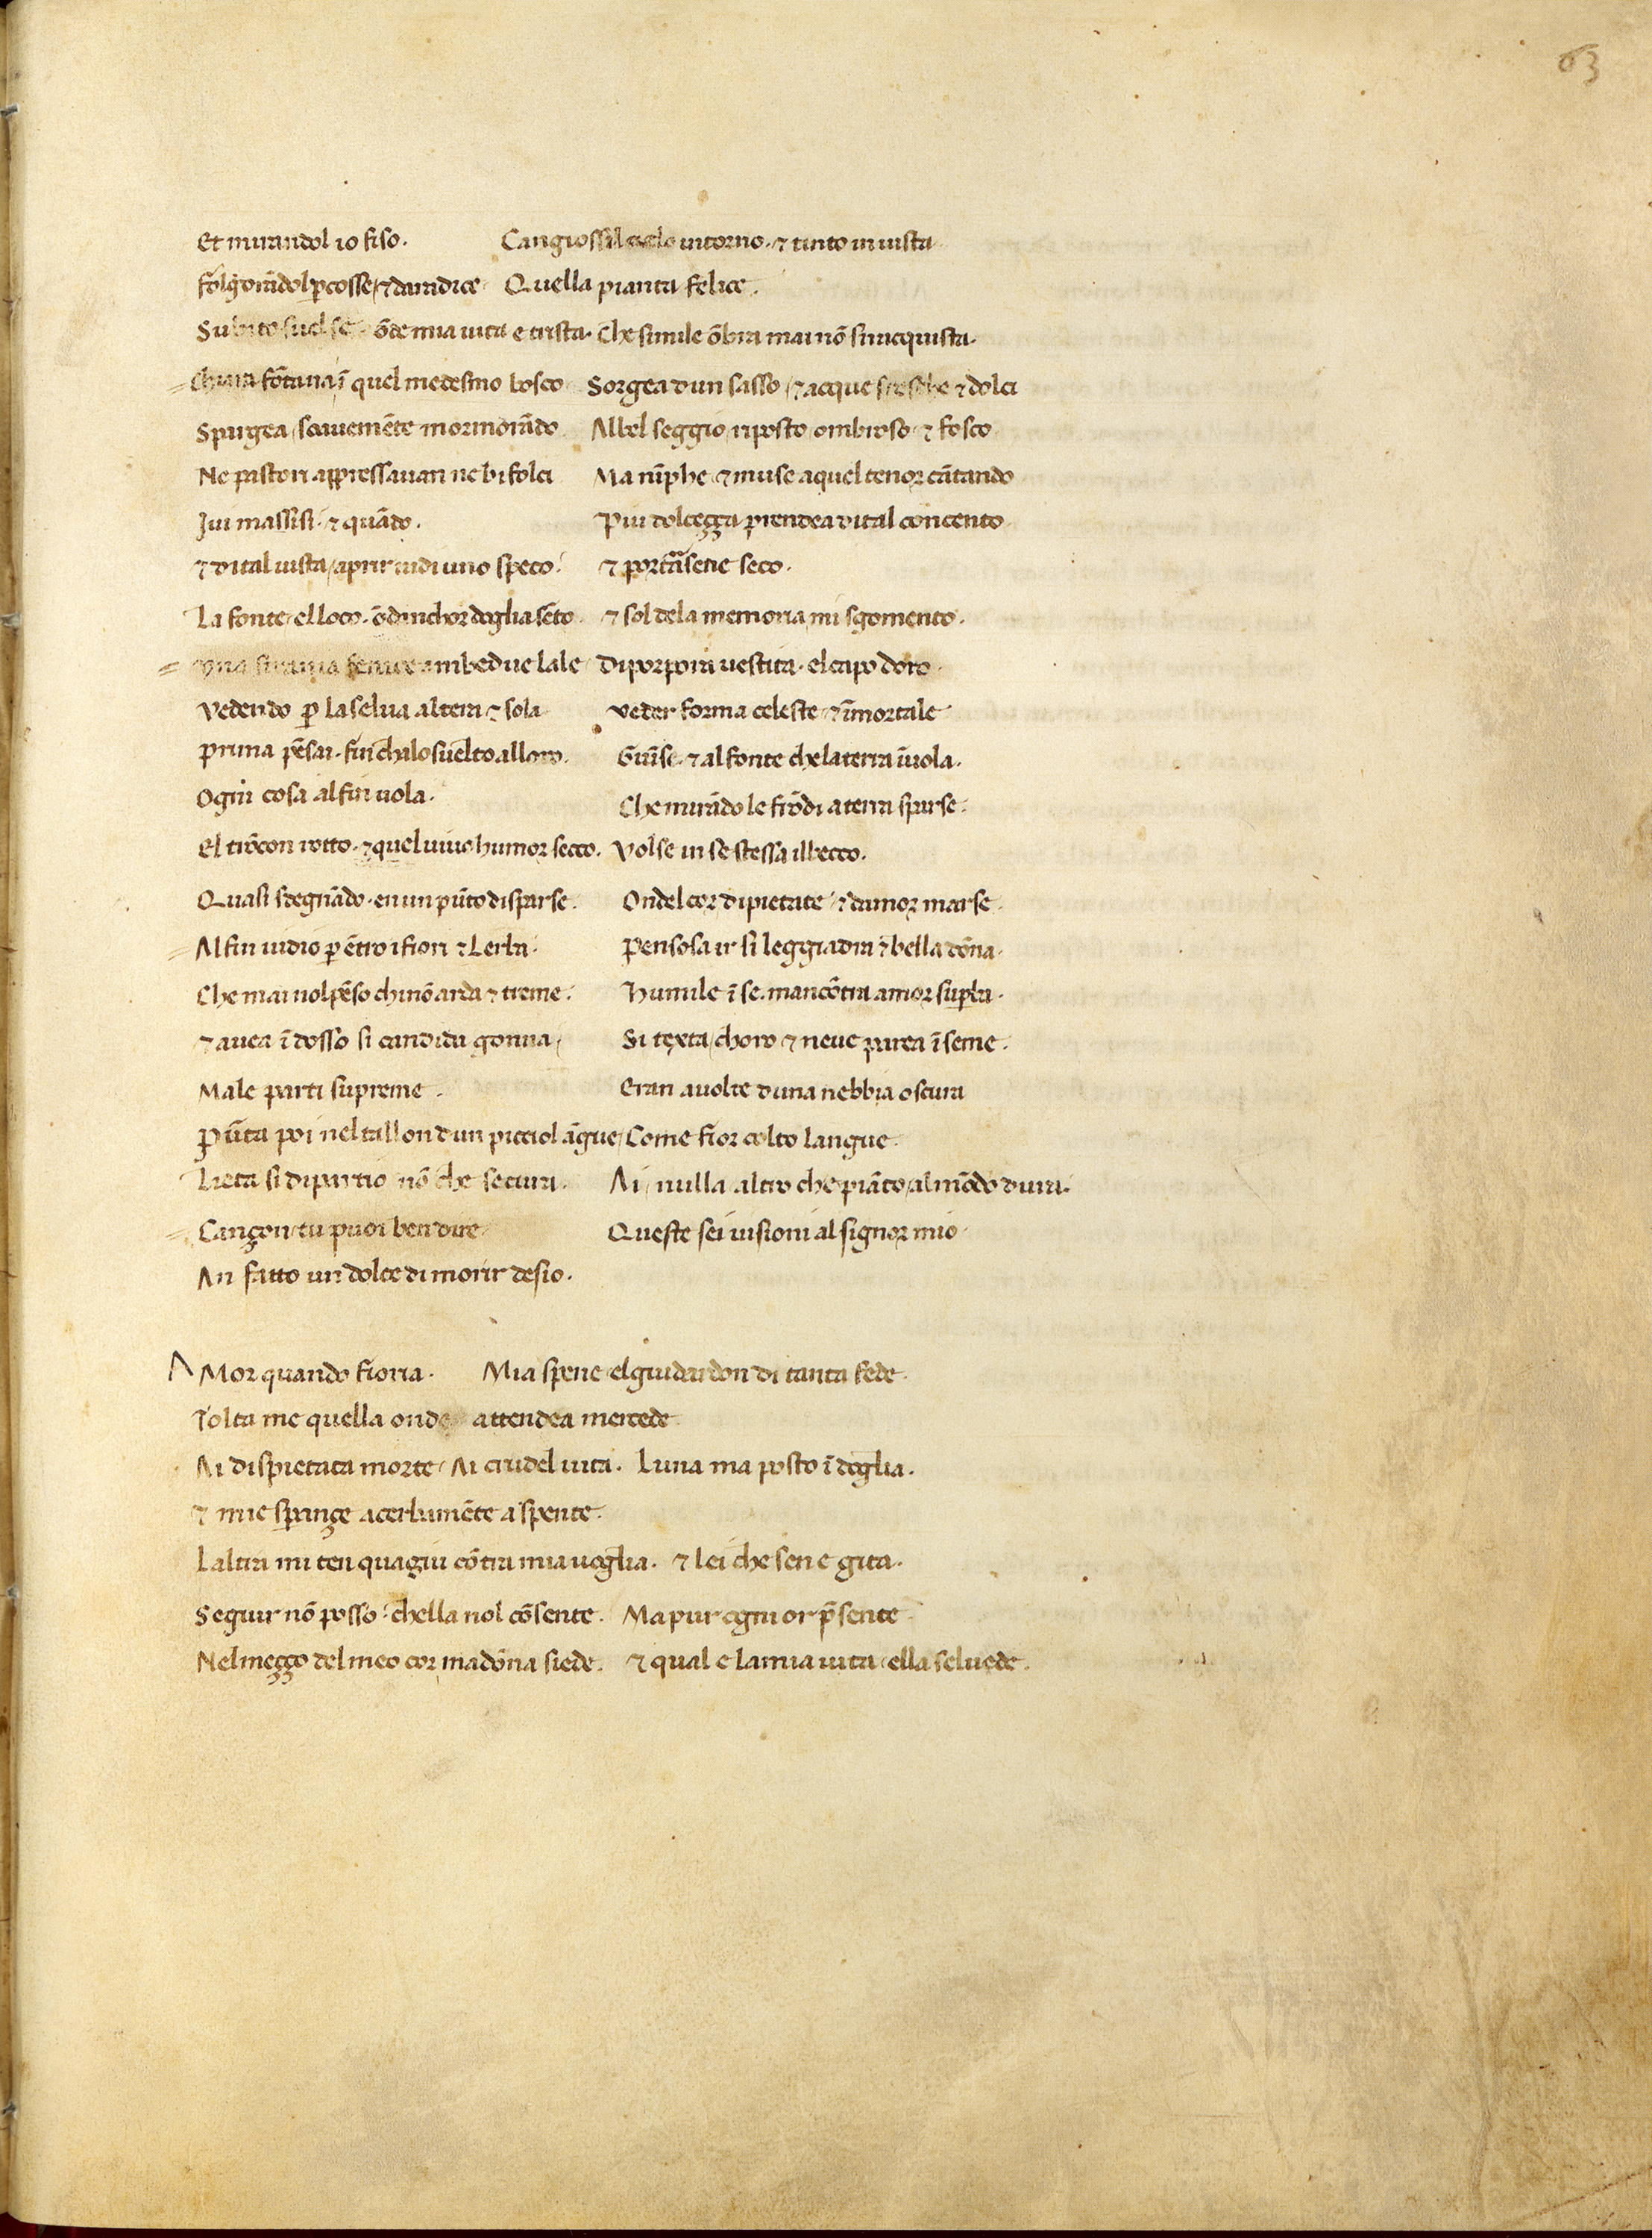 63
Et mirandol io fiso. Cangiossi il cielo intorno. ⁊ tinto in uista
folgorãdol ꝑcosse / ⁊ da radice Quella pianta felice.
Subito suelse. õde mia uita e trista. Che simile õbra mai nõ si racquista.
Chiara fõtana ĩ quel medesmo bosco Sorgea dun sasso / ⁊ acque fresche ⁊ dolci
Spargea / soauemẽte mormorãdo Al bel seggio / riposto / ombroso ⁊ fosco
Ne pastori appressauan ne bifolci Ma nĩphe ⁊ muse a quel tenor cãtando
Iui massisi. ⁊ quãdo. Piu dolceçça prendea di tal concento
⁊ di tal uista / aprir uidi uno speco. ⁊ portarsene seco.
La fonte / el loco. õdanchor doglia sẽto. ⁊ sol de la memoria mi sgomento.
Una strania fenice ambedue lale Di porpora uestita. el capo doro.
Vedendo ꝑ la selua altera ⁊ sola Veder forma celeste ⁊ ĩmortale
Prima pẽsai. fin chalo suelto alloro. Giũse. ⁊ al fonte che la terra ĩuola.
Ogni cosa al fin uola. Che mirãdo le frõdi a terra sparse.
El trõcon rotto. ⁊ quel uiuo humor secco. Volse in se stessa il becco.
Quasi sdegnãdo. en un pũto disparse. Ondel cor di pietate / ⁊ damor marse.
Alfin uidio ꝑ ẽtro i fiori ⁊ lerba. Pensosa ir si leggiadra ⁊ bella dõna.
Che mai nol pẽso chi nõ arda ⁊ treme. Humile ĩ se. mancõtra amor suꝑba.
⁊ auea ĩ dosso si candida gonna / Si texta / choro ⁊ neue parea ĩseme.
Ma le parti supreme. Eran auolte duna nebbia oscura
Pũta poi nel tallon dun picciol ãgue / Come fior colto langue.
Lieta si dipartio nõ che secura. Ai / nulla altro che piãto / al mõdo dura.
Cançon / tu puoi ben dire. Queste sei uisioni al signor mio.
An fatto un dolce di morir desio.
AMor quando fioria. Mia spene / el guidardon di tanta fede.
Tolta me quella onde attendea mercede
Ai dispietata morte / Ai crudel uita. Luna ma posto ĩ doglia.
⁊ mie sperançe acerbamẽte a spente.
Laltra mi ten qua giu cõtra mia uoglia. ⁊ lei che sen e gita.
Seguir nõ posso. chella nol cõsente. Ma pur ogni or p̃sente
Nel meçço del meo cor madõna siede. ⁊ qual e la mia uita / ella sel uede.